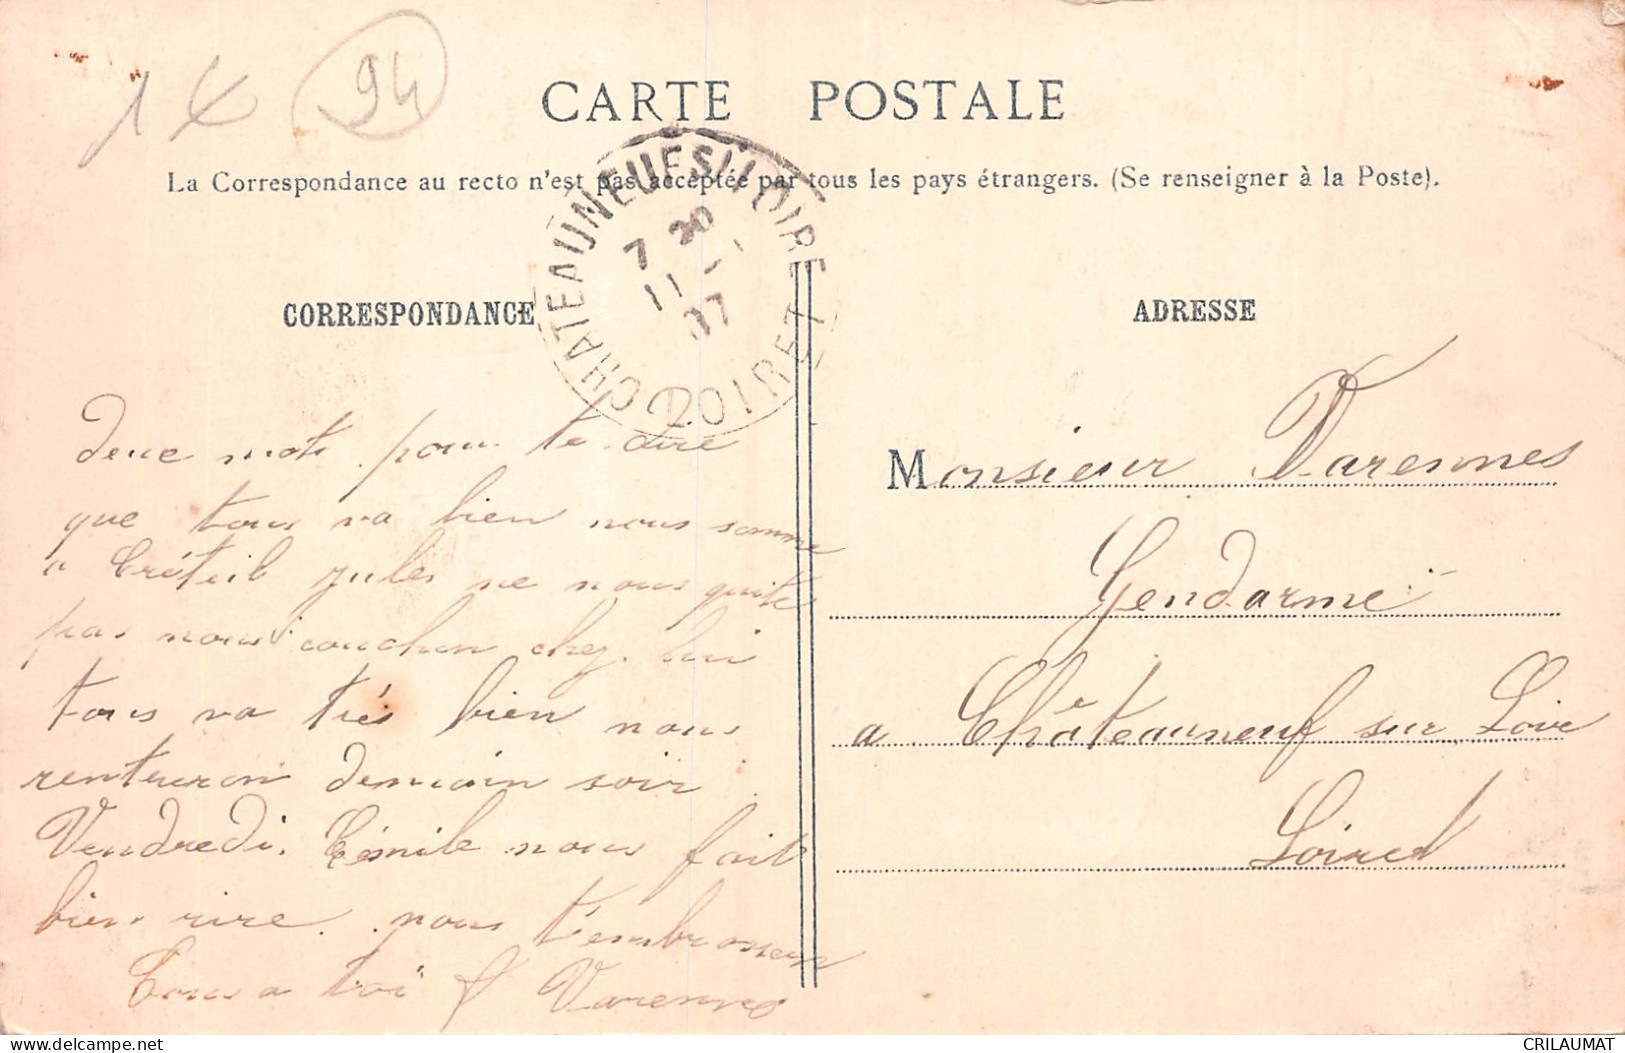 1 €
94
CARTE POSTALE
La Correspondance au recto n'est pas acceptée par tous les pays étrangers. (Se renseigner à la Poste).
CHATEAUNEUF S/ LOIRE
7 20
11
07
LOIRET
CORRESPONDANCE
deux mots pour te dire
que tous va bien nous somme
a Créteil jules ne nous quite
pas nous couchon chez lui
tous va très bien nous
rentreron demain soir
Vendredi. Émile nous fait
bien rire nous t'embrassen
Tous a toi Varennes
ADRESSE
Monsieur Varennes
Gendarme
a Châteauneuf sur Loire
Loiret
delcampe.net
CRILAUMAT